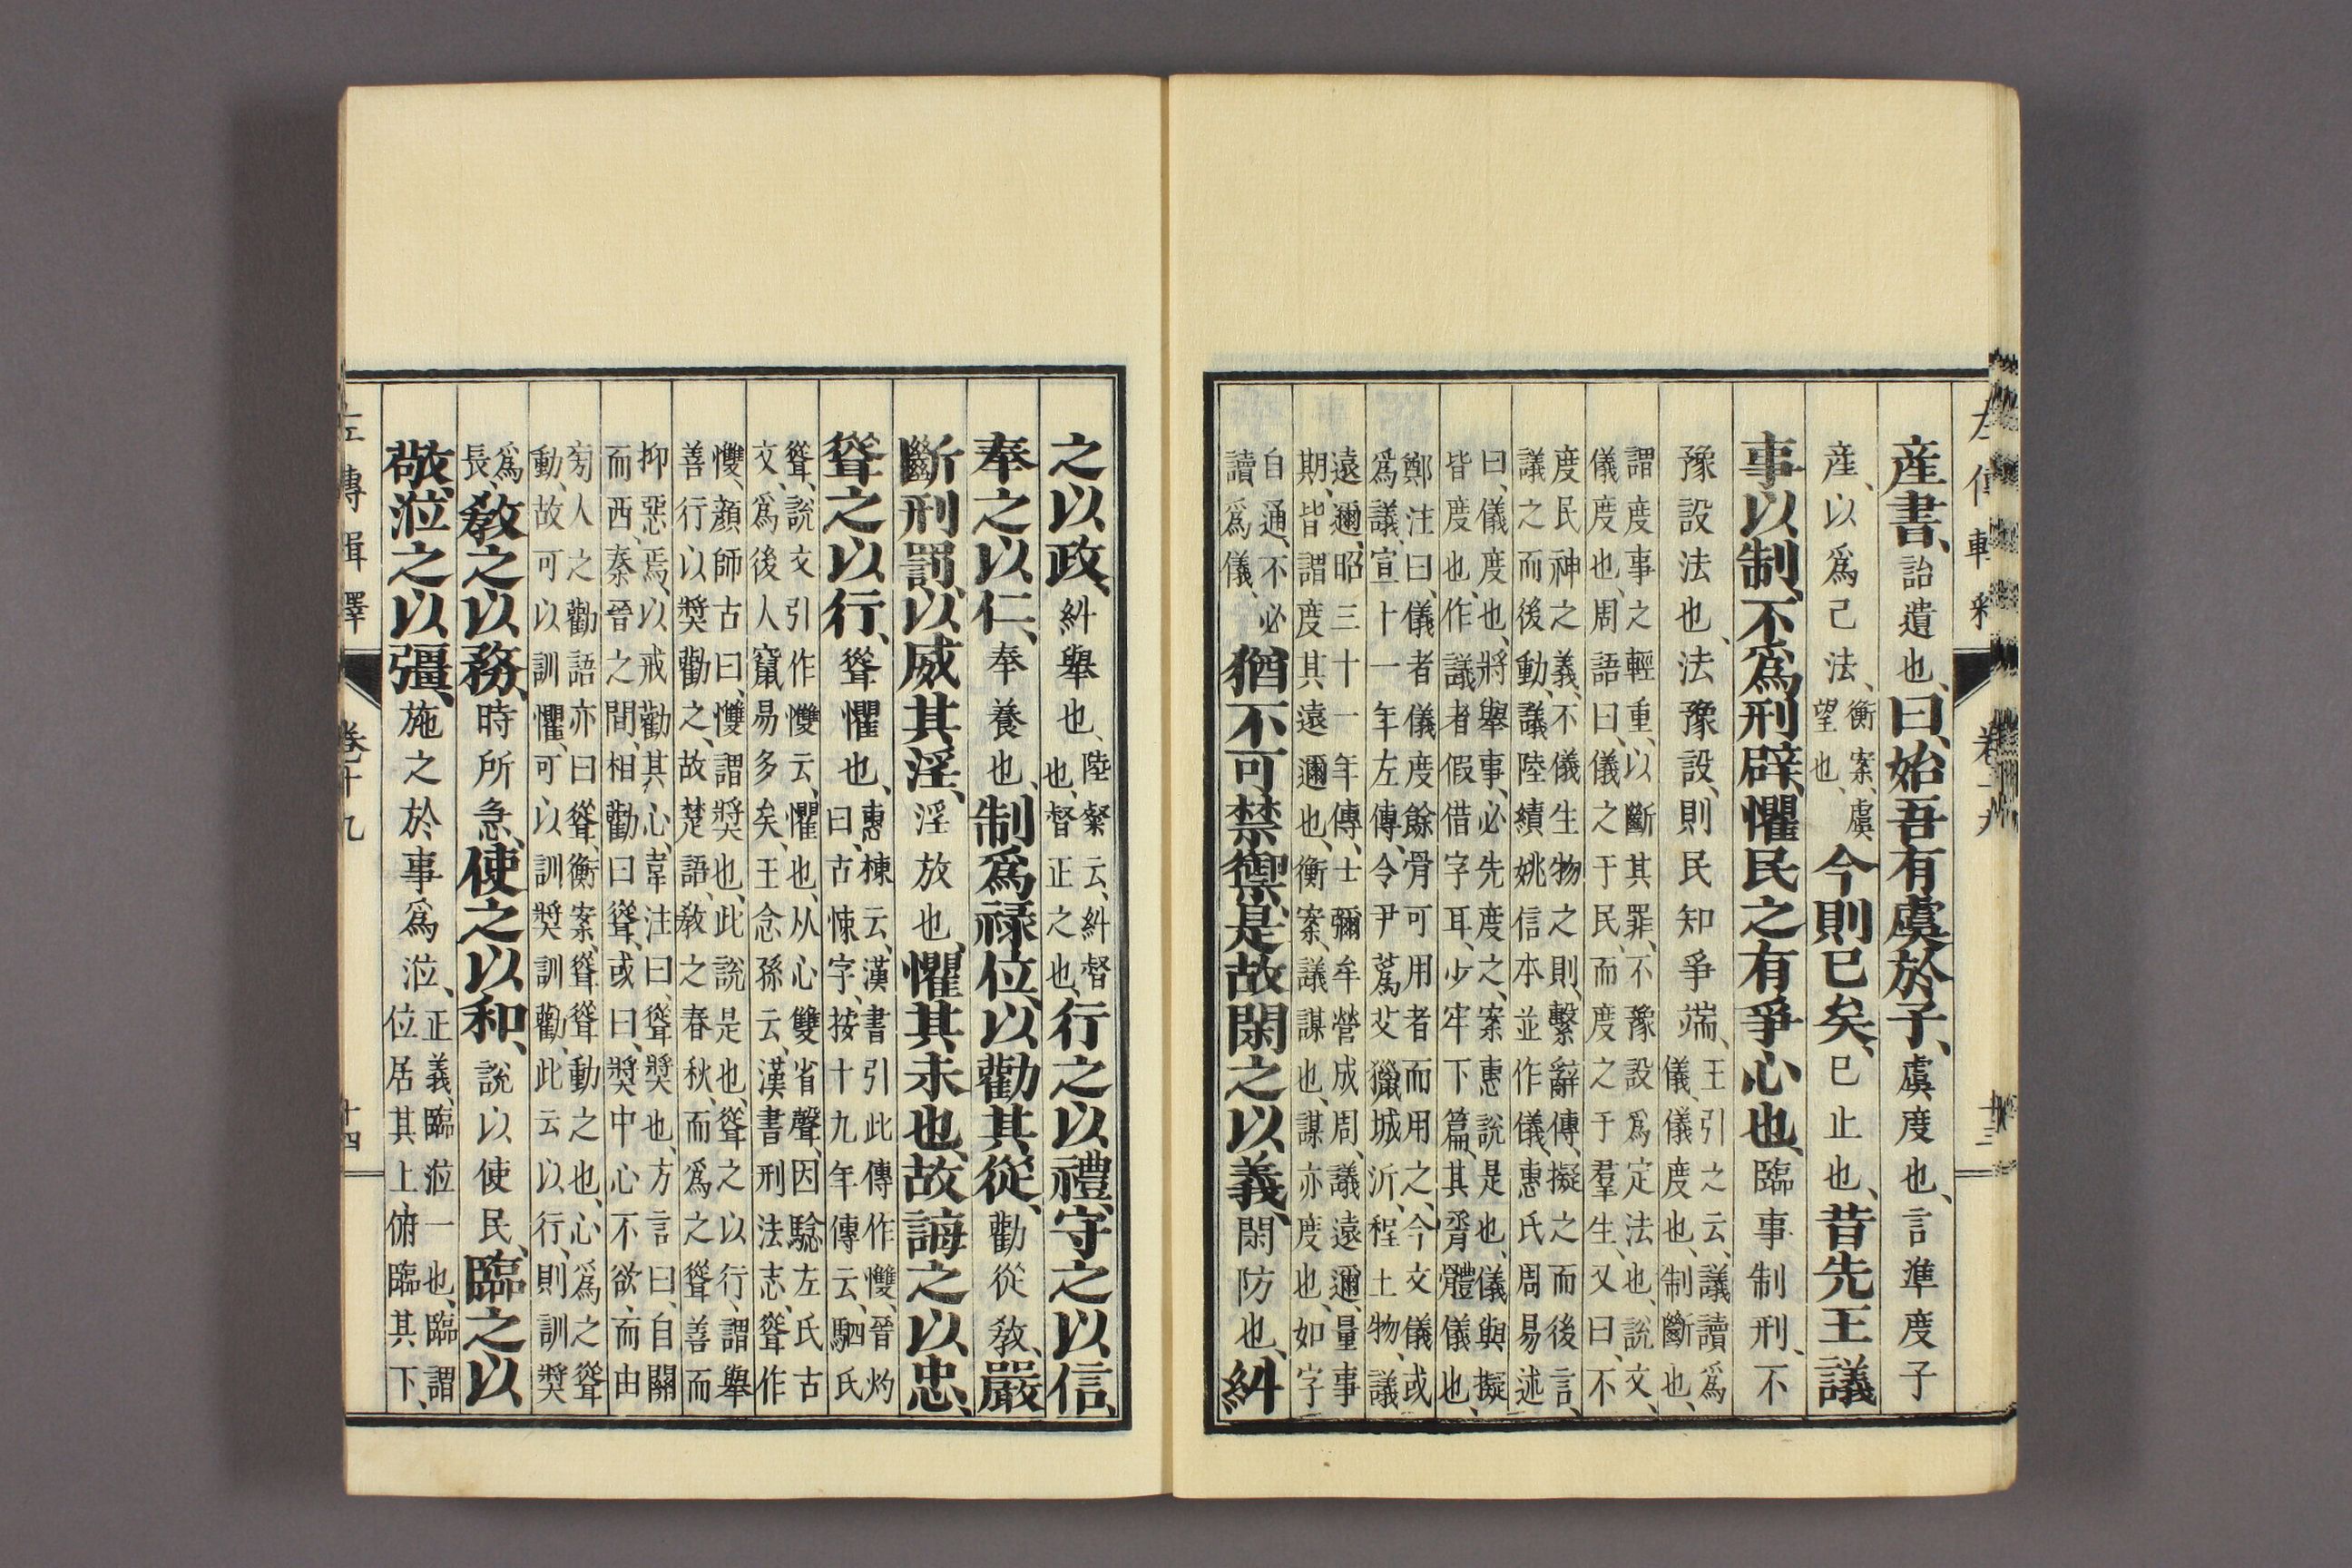 左傳輯釋　卷十九　十三
産書、詒遺也、曰、始吾有虞於子、虞度也、言準度子
産、以爲己法、衡案、虞
望也、今則已矣、已止也、昔先王議
事以制、不爲刑辟、懼民之有爭心也、臨事制刑、不
豫設法也、法豫設、則民知爭端、王引之云、議讀爲
儀、儀度也、制斷也、
謂度事之輕重、以斷其罪、不豫設爲定法也、說文、
儀度也、周語曰、儀之于民、而度之于羣生、又曰、不
度民神之義、不儀生物之則、繫辭傳、擬之而後言、
議之而後動、議陸績姚信本並作儀、惠氏周易述
曰、儀度也、將舉事、必先度之、案惠說是也、儀與擬
皆度也、作議者假借字耳、少牢下篇、其脀體儀也、
鄭注曰、儀者儀度餘骨可用者而用之、今文儀或
爲議、宣十一年左傳、令尹蒍艾獵城沂、程土物、議
遠邇、昭三十一年傳、士彌牟營成周、議遠邇、量事
期、皆謂度其遠邇也、衡案、議謀也、謀亦度也、如字
自通、不必
讀爲儀、猶不可禁禦、是故閑之以義、閑防也、糾
之以政、糾舉也、陸粲云、糾督
也、督正之也、行之以禮、守之以信、
奉之以仁、奉養也、制爲禄位、以勸其從、勸從教、嚴
斷刑罰、以威其淫、淫放也、懼其未也、故誨之以忠、
聳之以行、聳懼也、惠棟云、漢書引此傳作𢥠、晉灼
曰、古悚字、按十九年傳云、駟氏
聳、說文引作𢥠云、懼也、从心雙省聲、因騐左氏古
文、爲後人竄易多矣、王念孫云、漢書刑法志、聳作
𢥠、顏師古曰、𢥠謂奬也、此說是也、聳之以行、謂舉
善行以奬勸之、故楚語、教之春秋、而爲之聳善而
抑惡焉、以戒勸其心、韋注曰、聳奬也、方言曰、自關
而西、秦晉之間、相勸曰聳、或曰奬、中心不欲、而由
旁人之勸語亦曰聳、衡案、聳聳動之也、心爲之聳
動、故可以訓懼、可以訓奬訓勸、此云以行、則訓奬
爲
長、教之以務、時所急、使之以和、說以使民、臨之以
敬、涖之以彊、施之於事爲涖、正義、臨涖一也、臨謂
位居其上俯臨其下、
左傳輯釋　卷十九　十四